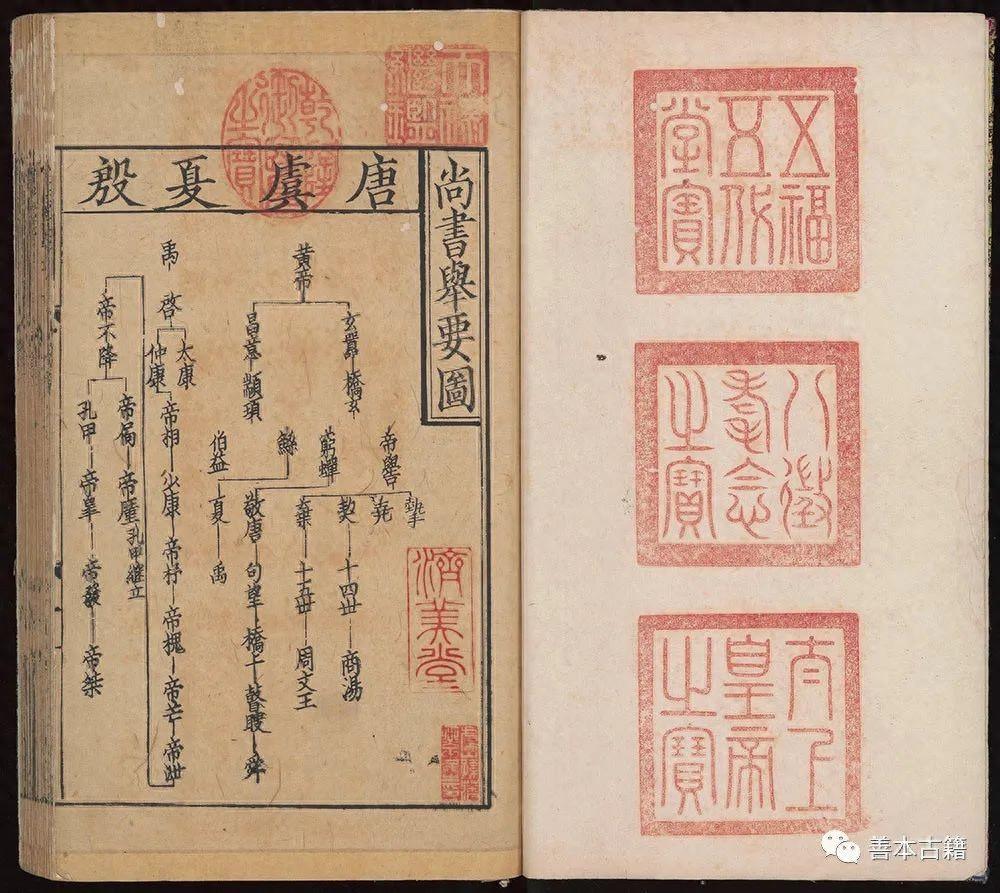 五福
五代
堂寶
八徵
耄念
之寶
太上
皇帝
之寶
天祿
繼鑑
乾隆
御覽
之寶
尚書舉要圖
唐虞夏殷
黃帝
玄囂 橋玄
昌意 顓頊
帝嚳
窮蟬
鯀
伯益
摯
堯
契 十四丗 商湯
棄 十五丗 周文王
敬唐 句望 橋牛 瞽瞍 舜
夏 禹
禹
啓
太康
仲康
帝相 少康 帝杼 帝槐 帝芒 帝泄
帝不降
帝扃 帝廑 孔甲繼立
孔甲 帝皋 帝發 帝桀
濟美堂
善本古籍